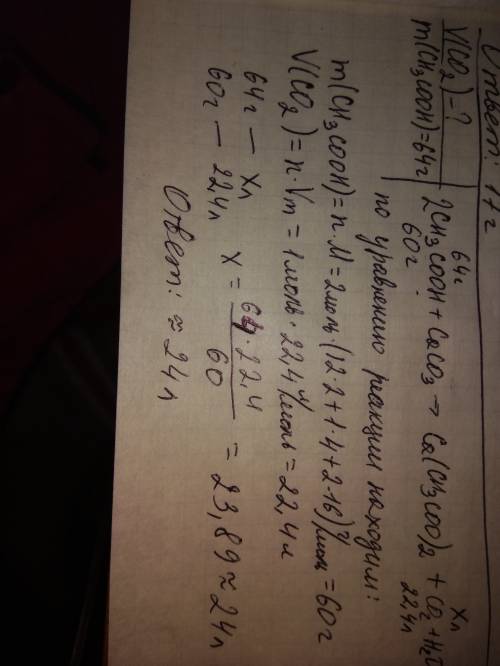 Ответ: 17г
V(CO₂)=? 64г Xл
m(CH₃COOH)=64г 2CH₃COOH + CaCO₃ → Ca(CH₃COO)₂ + CO₂ + H₂O
60г 22,4л
по уравнению реакции находим:
m(CH₃COOH) = n·M = 2моль·(12·2+1·4+2·16)г/моль = 60г
V(CO₂) = n·Vm = 1моль·22,4л/моль = 22,4л
64г — Xл
60г — 22,4л X = 64·22,4 / 60 = 23,89 ≈ 24л
Ответ: ≈ 24л